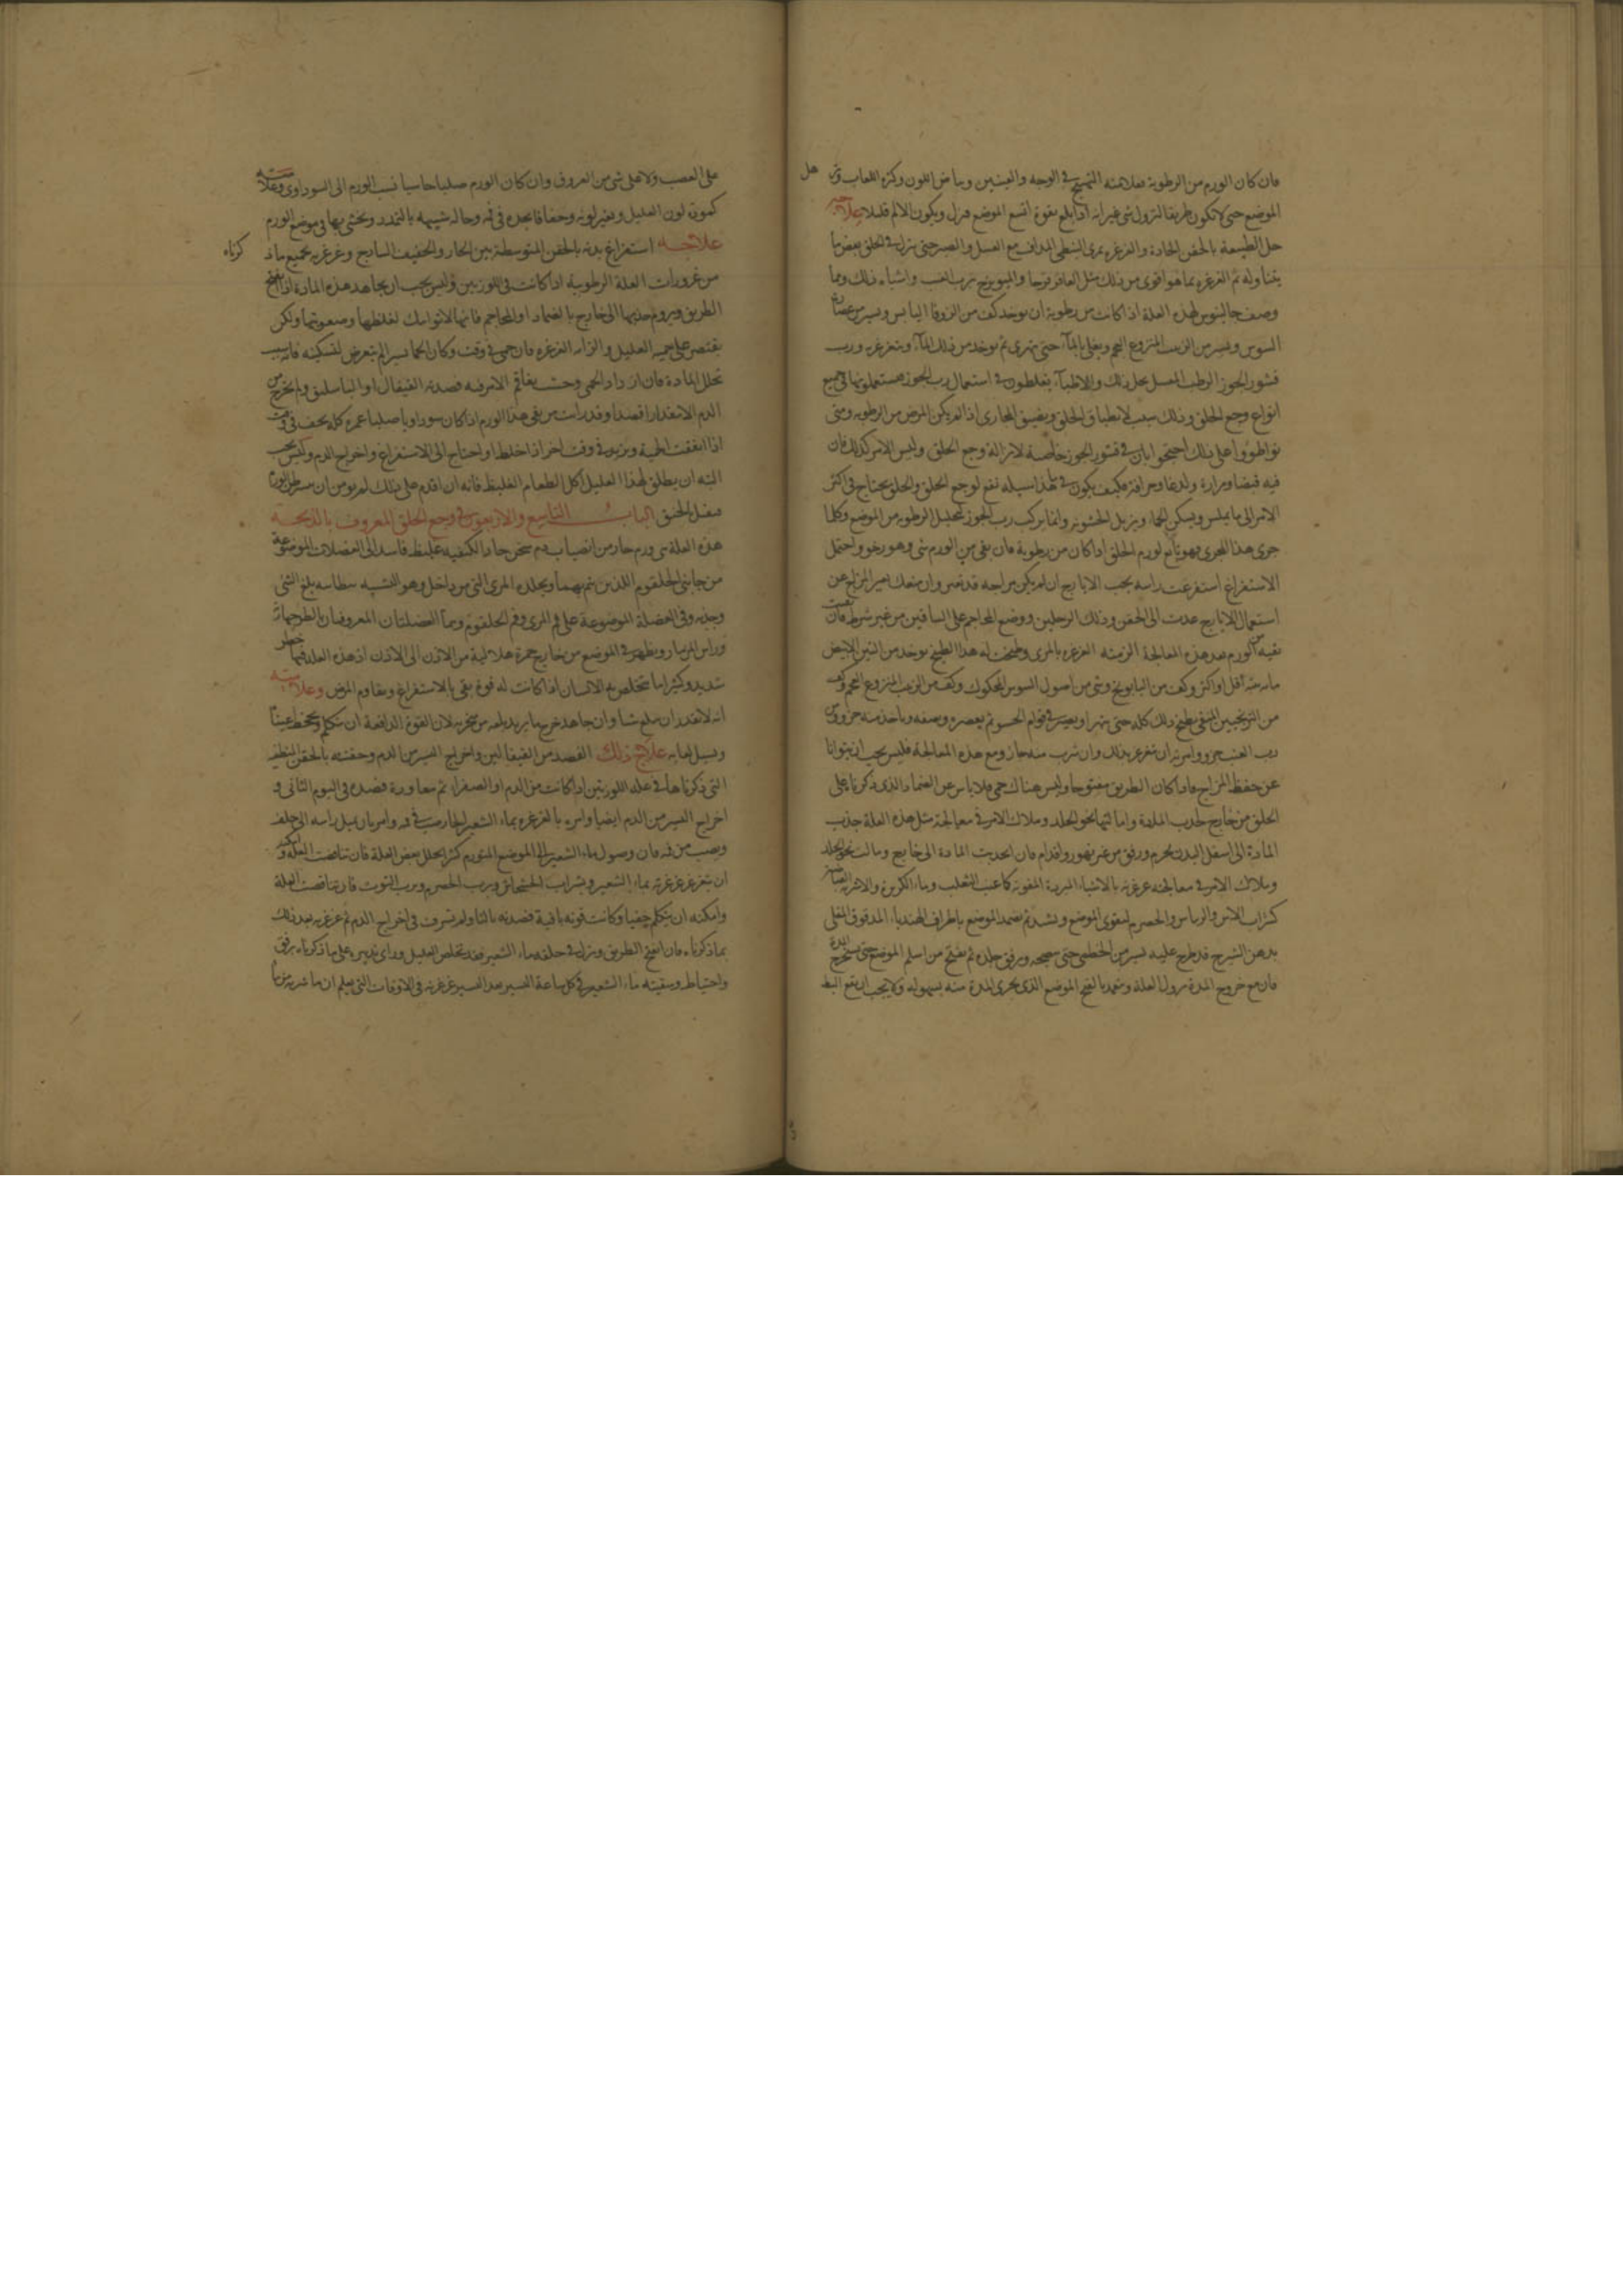 فان كان الورم من الرطوبة فعلامته التهيج في الوجه والعينين وبياض اللون وكثرة اللعاب
الموضع حتى لا تكون طريقا لنزول شي غير انه اذا بلع بقوة اتسع الموضع فنزل ويكون الالم قليلا علاجه
حل الطبيعة بالحقن الحادة والغرغرة بمري النبطي المداف مع العسل والصبر حتى ينزل في الحلق بعض ما
يتناوله ثم الغرغرة بما هو اقوى من ذلك مثل العاقرقرحا والميويزج برب العنب واشباه ذلك ومما
وصف جالينوس لهذه العلة اذا كانت من رطوبة ان يوخذ كف من الزوفا اليابس ويسير من
السوس ويسير من الزبيب المنزوع العجم ويغلى بالمآء حتى يتهرى ثم يوخذ من ذلك المآء ويتغرغر به ورب
قشور الجوز الرطب العسل يحل ذلك والاطبآء يغلطون في استعمال رب الجوز فيستعملونها في جميع
انواع وجع الحلق وذلك سبب لانطباق الحلق ويضيق المجاري اذا لم يكن المرض من الرطوبة ومتى
تواطووا على ذلك احتجوا بان في قشور الجوز خاصة لازالة وجع الحلق وليس الامر كذلك فان
فيه قبضا ومرارة ولدغا وحرافة فكيف يكون في هذا سبيله نفع لوجع الحلق والحلق يحتاج في اكثر
الامر الى ما يملس ويسكن الحما ويزيل الخشونة وانما يركب رب الجوز لتحليل الرطوبة من الموضع وكلما
جرى هذا المجرى فهو نافع لورم الحلق اذا كان من رطوبة فان بقي من الورم شي وهو رخو واحتمل
الاستفراغ استفرغت راسه بحب الايارج ان لم يكن مزاجه قد تغير وان منعك تغير المزاج عن
استعمال الايارج عدت الى الحقن ودلك الرجلين ووضع المحاجم على الساقين من غير شرط فان
بقيه من الورم بعد هذه المعالجة الزمته الغرغرة بالمري وطبخت له هذا الطبيخ يوخذ من التين الابيض
مائة تينة اقل او اكثر وكف من البابونج وشي من اصول السوس المحكوك وكف من الزبيب المنزوع العجم وكف
من الترنجبين المنقى يطبخ ذلك كله حتى يتهرا ويصير في قوام الحسو ثم يعصره ويصفه وياخذ منه جزو ومن
رب العنب جزو وامرته ان يتغرغر بذلك وان شرب منه جاز ومع هذه المعالجة فليس يجب ان يتوانا
عن حفظ المزاج فاذا كان الطريق مفتوحا وليس هناك حمى فلا باس عن الضماد الذي ذكرناه على
الحلق من خارج لجذب المادة وامالتها نحو الجلد وملاك الامر في معالجة مثل هذه العلة جذب
المادة الى اسفل البدن بحزم ورفق من غير تهور واقدام فان انجذبت المادة الى خارج ومالت نحو الجلد
وملاك الامر في معالجته غرغرته بالاشياء المبردة المقوية كماء عنب الثعلب وماء الكزبرة والاشربة القابضة
كشراب الاس والريباس والحصرم لتقوى الموضع وتشد ثم تضمد الموضع باطراف الهندباء المدقوق المغلى
بدهن الشيرج قد طرح عليه يسير من الخطمى حتى ينضجه ويرق جلده ثم يفتح من اسلم الموضع حتى تخرج المدة
فان مع خروج المدة يزول العلة ويتعمد بالفتح الموضع الذى يجرى المدة منه بسهوله ولا يجب ان يقع البط
على العصب ولا على شى من العروق وان كان الورم صلبا جاسيا نسب الورم الى السوداوى وعلامته
كمودة لون العليل وتغير لونه وجفافا يجده في فمه وحالة شبيهة بالتمدد ويخشى بها في موضع الورم
علاجه استفراغ بدنه بالحقن المتوسطة بين الحار والخفيف الساذج وغرغرته بجميع ما ذكرناه
من غرورات العلة الرطوبية اذا كانت في اللوزتين وليس يجب ان يجاهد هذه المادة اذا انفتح
الطريق ويروم جذبها الى خارج بالضماد او المحاجم فانها لا تواتيك لغلظها وصعوبتها ولكن
يقتصر على حمية العليل والزامه الغرغرة فان حمى في وقت وكان الحما يسيرا لم يتعرض لتسكينه فانه سبب
تحلل المادة فان ازداد الحمى وخشيت تفاقم الامر فيه فصدته القيفال او الباسليق ولم تخرج من
الدم الا مقدارا قصدا وقد رايت من بقى هذا الورم اذا كان سوداويا صلبا عمره كله يخف في وقت
اذا اتفقت الحمية ويزيد في وقت اخر اذا خلط او احتاج الى الاستفراغ واخراج الدم وليس يجب
البته ان يطلق لهذا العليل اكل الطعام الغليظ فانه ان اقدم على ذلك لم يومن ان يسرطن الورم
فيقتل الخنق الباب التاسع والاربعون في وجع الحلق المعروف بالذبحه
هذه العلة هى ورم حار من انصباب دم سخن حاد الكيفيه غليظ فاسد الى العضلات الموضوعة
من جانبى الحلقوم اللذين بهما ويجلده المرى التى من داخل وهو الشبيه بطاسه بلغ الشى
وجذبه وفى العضلة الموضوعة على فم المرى وفم الحلقوم وهما العضلتان المعروفتان بالطرجهارتين
وراس المزمار ويظهر في الموضع من خارج حمرة هلالية من الاذن الى الاذن اذ هذه العلة فيها خطر
شديد وكثيرا ما يتخلص به الانسان اذا كانت له قوة يبقى بالاستفراغ ويقاوم المرض وعلامته
انه لا يقدر ان يبلع شيا وان جاهد خرج ما يريد بلعه من منخريه لان القوة الدافعة ان يتكلم وتجحظ عيناه
ويسيل لعابه علاج ذلك الفصد من القيفالين واخراج اليسير من الدم وحقنته بالحقن اللطيفة
التى ذكرناها في علة اللوزتين اذا كانت من الدم او الصفراء ثم معاودة فصده فى اليوم الثانى و
اخراج اليسير من الدم ايضا وامره بالغرغرة بماء الشعير الحار يصب في فمه وامر بان يميل راسه الى خلف
ويصب من فمه فان وصول ماء الشعير الى الموضع المتورم كثيرا يحلل بعض العلة فان تناقصت العلة وامكنه
ان يتغرغر غرغرته بماء الشعير وبشراب الخشخاش وبرب الحصرم وبرب التوت فان تناقصت العلة
وامكنه ان يتكلم خفيا وكانت قوته باقية فصدته ثالثا ولم تسرف فى اخراج الدم ثم غرغرته بعد ذلك
بما ذكرناه فان انفتح الطريق ونزل في حلقه ماء الشعير فقد تخلص العليل وداى تدبيره على ما ذكرناه برفق
واحتياط وسقيته ماء الشعير في كل ساعة اليسير بعد اليسير غرغرته فى الاوقات التى يعلم ان ما شربه مر